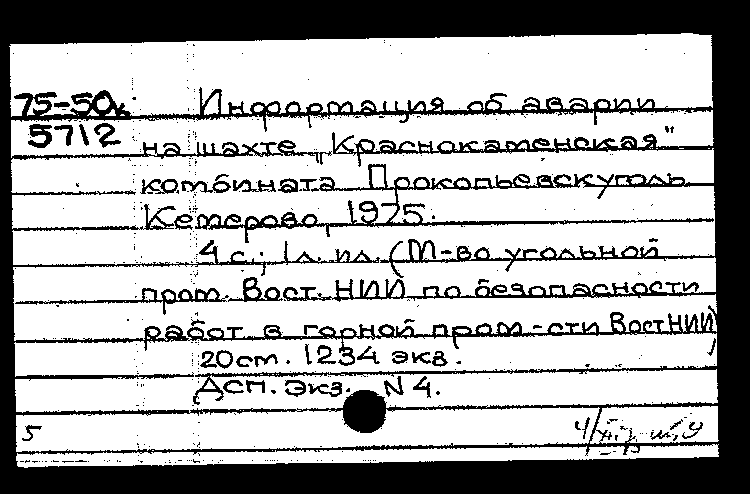 75-50к
5712
Информация об аварии
на шахте „Краснокаменская"
комбината Прокопьевскуголь
Кемерово, 1975.
4 с.; 1 л. ил. (М-во угольной
пром. Вост. НИИ по безопасности
работ в горной пром-сти ВостНИИ)
20 см. 1234 экз.
Дсп. Экз. N 4.
5